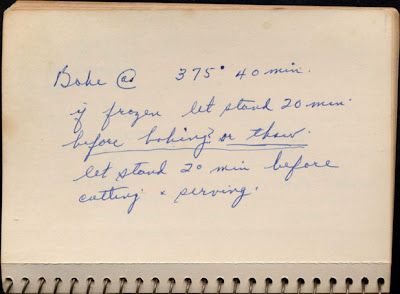 Bake @ 375° 40 min.
if frozen let stand 20 min.
before baking or thaw.
let stand 20 min before
cutting & serving.